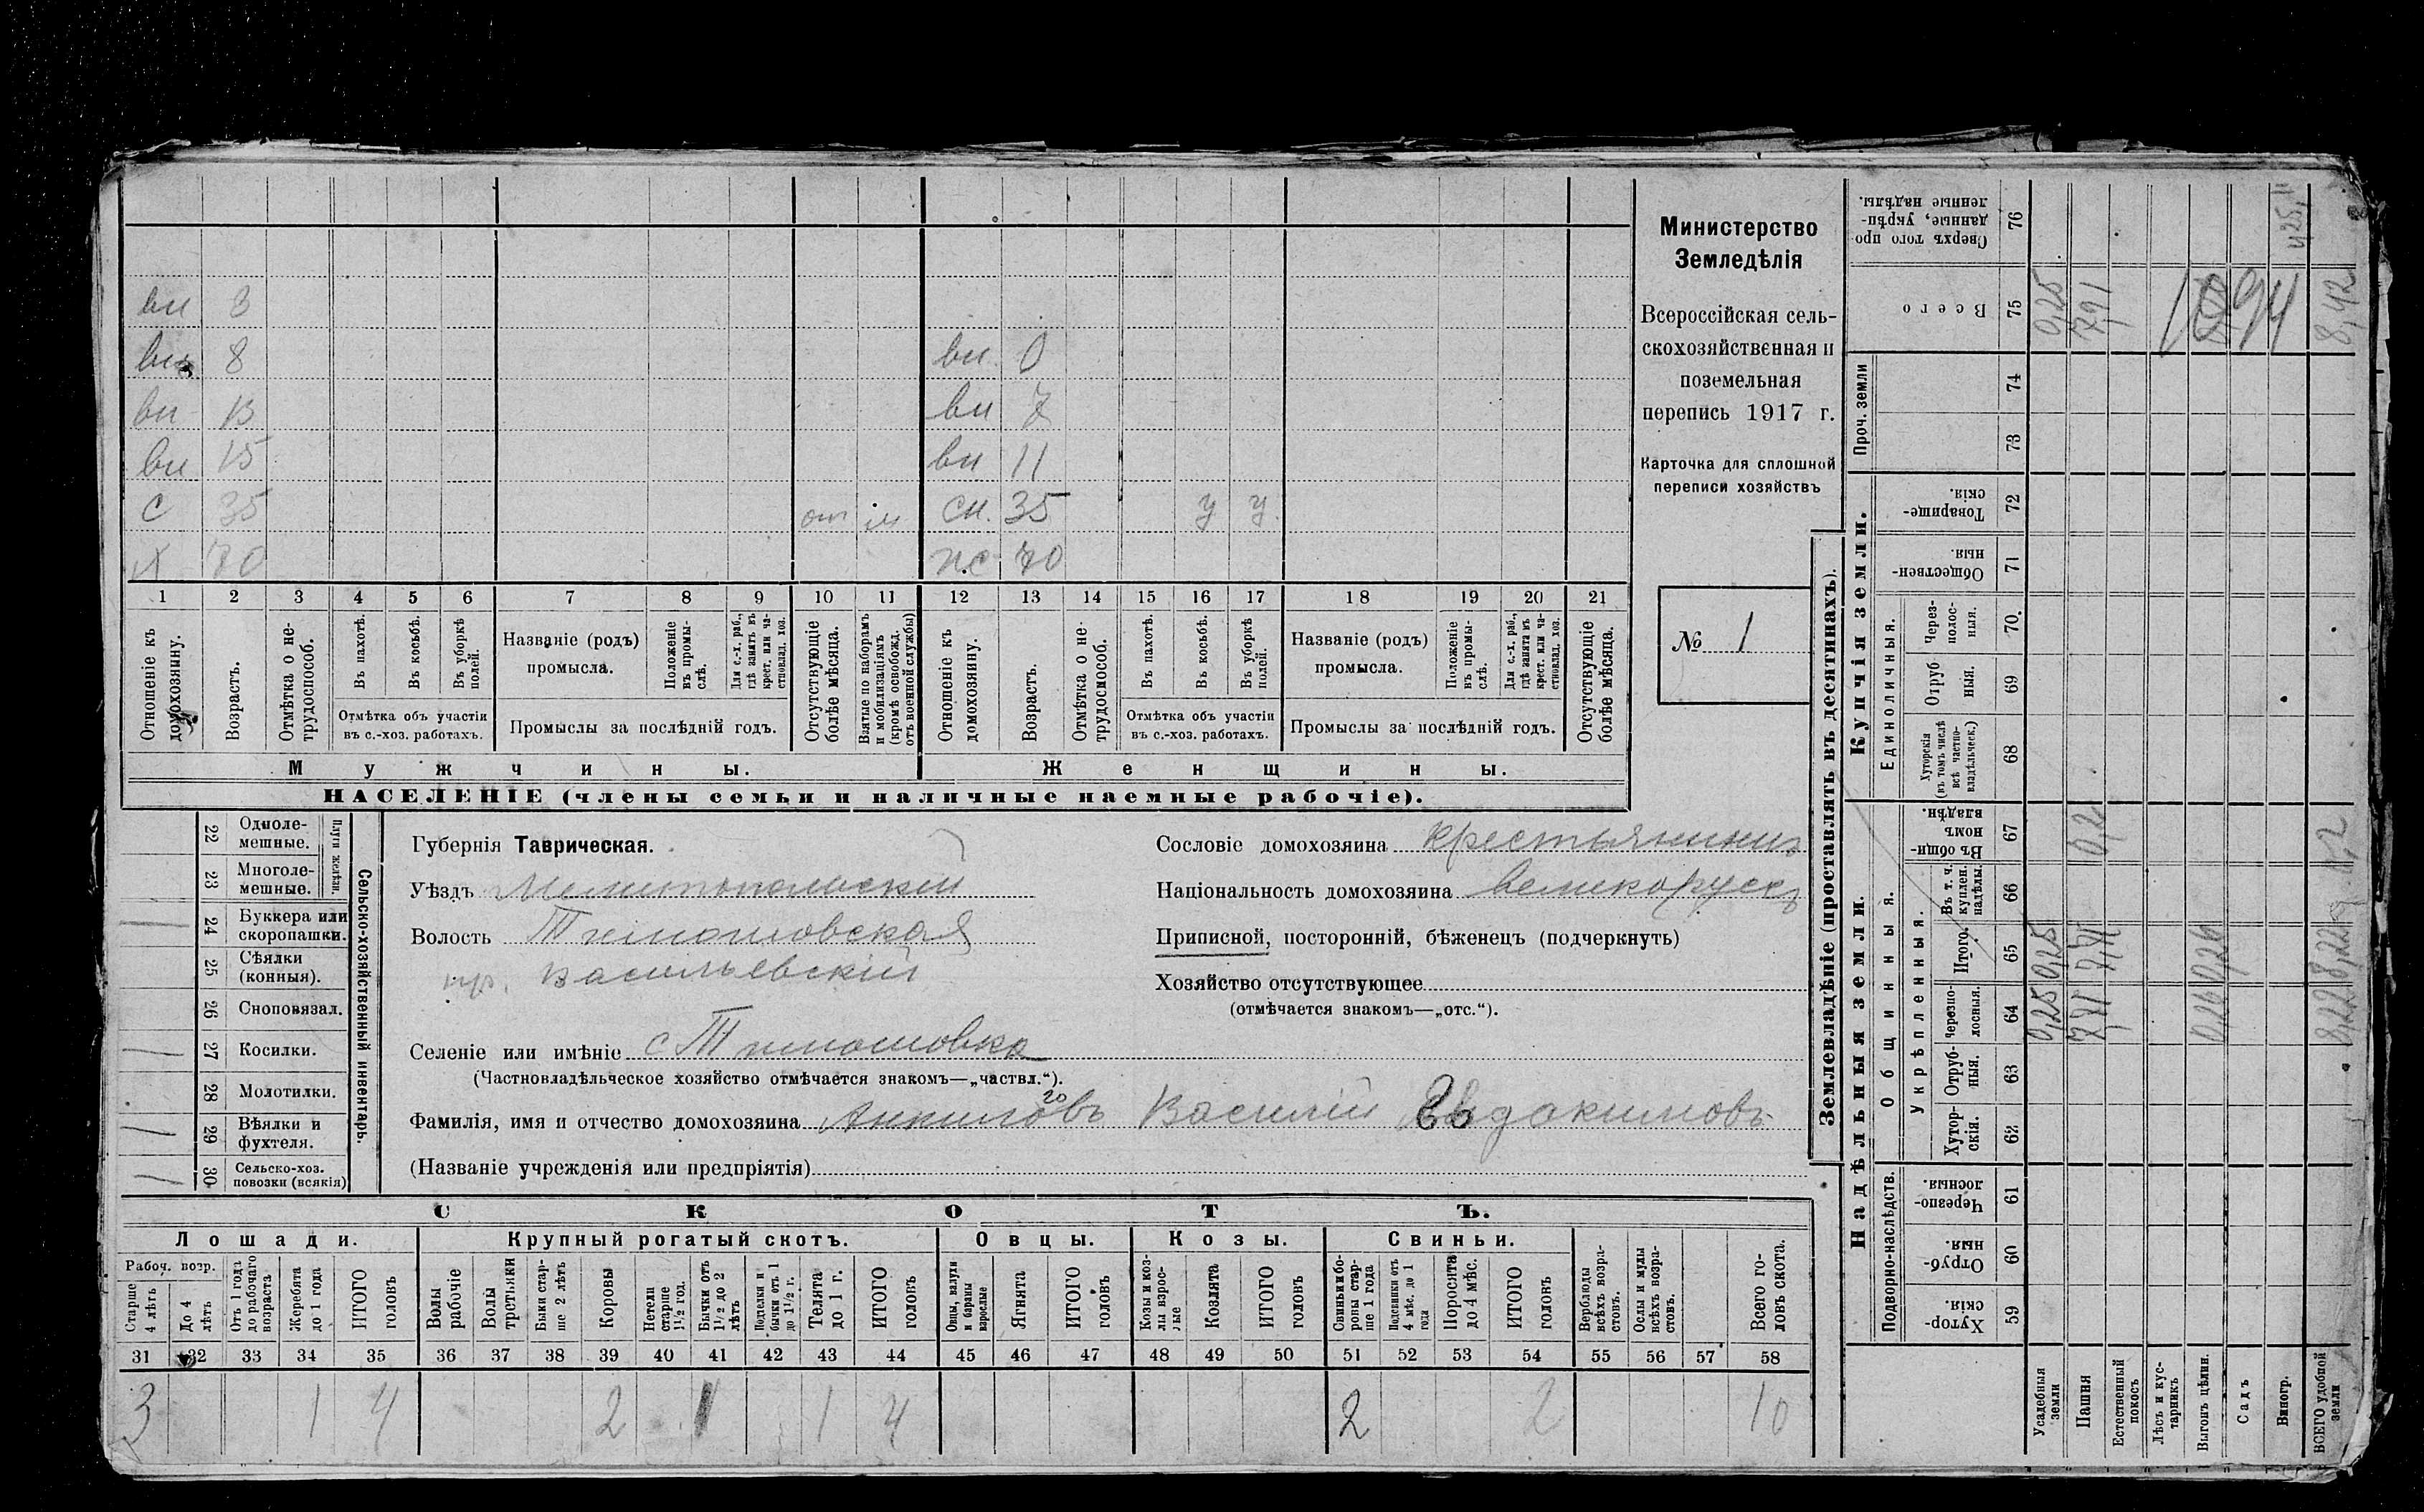 Министерство
Земледѣлія
Всероссійская сель-
скохозяйственная и
поземельная
перепись 1917 г.
Карточка для сплошной
переписи хозяйствъ
№ 1
вн 3
вн 8 вн. 0
вн 13 вн 7
вн 15 вн 11
С 35 от м сн. 35 у у
х 70 нс 70
1 2 3 4 5 6 7 8 9 10 11 12 13 14 15 16 17 18 19 20 21
Отношеніе къ домохозяину.
Возрастъ.
Отмѣтка о не-трудоспособ.
Въ пахотѣ.
Въ косьбѣ.
Въ уборкѣ полей.
Отмѣтка объ участіи
въ с.-хоз. работахъ.
Названіе (родъ)
промысла.
Положеніе въ промы-слѣ.
Для с.-х. раб., гдѣ занятъ въ крест. или ча-стновлад. хоз.
Промыслы за послѣдній годъ.
Отсутствующіе болѣе мѣсяца.
Взятые по наборамъ и мобилизаціямъ (кромѣ освобожд. отъ военной службы)
Отношеніе къ домохозяину.
Возрастъ.
Отмѣтка о не-трудоспособ.
Въ пахотѣ.
Въ косьбѣ.
Въ уборкѣ полей.
Отмѣтка объ участіи
въ с.-хоз. работахъ.
Названіе (родъ)
промысла.
Положеніе въ промы-слѣ.
Для с.-х. раб., гдѣ занята въ крест. или ча-стновлад. хоз.
Промыслы за послѣдній годъ.
Отсутствующіе болѣе мѣсяца.
Мужчины. Женщины.
НАСЕЛЕНІЕ (члены семьи и наличные наемные рабочіе).
Сельско-хозяйственный инвентарь.
Плуги желѣзн.
22 Одноле-мешные.
23 Многоле-мешные.
24 Буккера или скоропашки.
25 Сѣялки (конныя).
26 Сноповязал.
27 Косилки.
28 Молотилки.
29 Вѣялки и фухтеля.
30 Сельско-хоз. повозки (всякія)
Губернія Таврическая.
Уѣздъ Мелитопольскій
Волость Тимошовская
пр. Васильевскій
Селеніе или имѣніе с Тимошовка
(Частновладѣльческое хозяйство отмѣчается знакомъ—„частвл.“).
Фамилія, имя и отчество домохозяина Василій Евдокимовъ
(Названіе учрежденія или предпріятія)
Сословіе домохозяина крестьянинъ
Національность домохозяина великоруссъ
Приписной, посторонній, бѣженецъ (подчеркнуть)
Хозяйство отсутствующее
(отмѣчается знакомъ—„отс.“).
СКОТЪ.
Лошади. Крупный рогатый скотъ. Овцы. Козы. Свиньи.
Рабоч. возр.
Старше 4 лѣтъ
До 4 лѣтъ
Отъ 1 года до рабочаго возраста
Жеребята до 1 года
ИТОГО головъ
Волы рабочіе
Волы третьяки
Быки стар-ше 2 лѣтъ
Коровы
Нетели старше 1½ год.
Бычки отъ 1½ до 2 лѣтъ
Подтелки и бычки отъ 1 до 1½ г.
Телята до 1 г.
ИТОГО головъ
Овцы, валухи и бараны взрослые
Ягнята
ИТОГО головъ
Козы и коз-лы взрос-лые
Козлята
ИТОГО головъ
Свиньи и бо-ровы стар-ше 1 года
Подсвинки отъ 4 мѣс. до 1 года
Поросята до 4 мѣс.
ИТОГО головъ
Верблюды всѣхъ возра-стовъ.
Ослы и мулы всѣхъ возра-стовъ.
Всего го-ловъ скота.
31 32 33 34 35 36 37 38 39 40 41 42 43 44 45 46 47 48 49 50 51 52 53 54 55 56 57 58
3 1 4 2 1 1 4 2 2 10
Землевладѣніе (проставлять въ десятинахъ).
Надѣльныя земли.
Купчія земли.
Проч. земли
Подворно-наслѣдств.
Общинныя.
Укрѣпленныя.
Единоличныя.
59 Хутор-скія.
60 Отруб-ныя.
61 Черезпо-лосныя.
62 Хутор-скія.
63 Отруб-ныя.
64 Черезпо-лосныя.
65 Итого.
66 Въ т. ч. куплен. надѣлы.
67 Въ общин-номъ владѣн.
68 Хуторскія (въ томъ числѣ всѣ частно-владѣльческ.)
69 Отруб-ныя.
70. Через-полос-ныя.
71 Обществен-ныя.
72 Товарище-скія.
73
74
75 Всего
76 Сверхъ того про-данные, укрѣп-ленные надѣлы.
Усадебныя земли 0,25 0,25 0,25
Пашня 7,71 7,71 0,2 7,91
Естественный покосъ
Лѣсъ и кус-тарникъ
Выгонъ цѣлин. 0,26 0,26
Садъ
Виногр.
ВСЕГО удобной земли 8,22 8,22 0,2 8,42